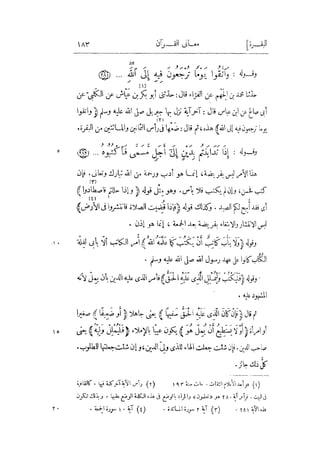 البقرة]
معانى القرآن
١٨٣
وقوله : ﴿وَاتَّقُوا يَوْمًا تُرْجَعُونَ فِيهِ إِلَى اللَّهِ ... (٢٨١)﴾
حدثنا محمد بن الجهم عن الفراء قال : حدثنى أبو بكر بن عياش(١) عن الكلبى عن
أبى صالح عن ابن عباس قال : آخر آية نزل بها جبريل صلى الله عليه وسلم ﴿واتقوا
يوما ترجعون فيه إلى الله﴾ هذه ، ثم قال : ضعها(٢) فى رأس الثمانين والمائتين من البقرة.
وقوله : ﴿إِذَا تَدَايَنْتُمْ بِدَيْنٍ إِلَى أَجَلٍ مُسَمًّى فَاكْتُبُوهُ ... (٢٨٢)﴾
هذا الأمر ليس بفريضة، إنما هو أدب ورحمة من الله تبارك وتعالى. فإن
كتب فحسن، وإن لم يكتب فلا بأس. وهو مثل قوله ﴿وإذا حللتم فاصطادوا﴾(٣)
أى فقد أبيح لكم الصيد. وكذلك قوله ﴿فإذا قضيت الصلاة فانتشروا فى الأرض﴾(٤)
ليس الانتشار والابتغاء بفريضة بعد الجمعة ، إنما هو إذن .
وقوله ﴿ولا يأب كاتب أن يكتب كما علمه الله﴾ أمر الكاتب ألا يأبى لقلة
الكتاب كانوا على عهد رسول الله صلى الله عليه وسلم .
وقوله ﴿فليكتب وليملل الذى عليه الحق﴾ فأمر الذى عليه الدين بأن يمل لأنه
المشهود عليه .
ثم قال ﴿فإن كان الذى عليه الحق سفيها﴾ يعنى جاهلا ﴿أو ضعيفا﴾ صغيرا
أو امرأة ﴿أو لا يستطيع أن يمل هو﴾ يكون عييا بالإملاء، ﴿فليملل وليه﴾ يعنى
صاحب الدين. فإن شئت جعلت الهاء للذى ولى الدين، وإن شئت جعلتها للمطلوب.
كل ذلك جائز.
(١) هو أحد الأعلام الثقات. مات سنة ١٩٣ (٢) رأس الآية آخر كلمة فيها ، كالقافية
فى البيت . فرأس آية ٢٨٠ هو «تعلمون» والمراد بالوضع فى هذه الكلمة الوضع عقبها ، وبذلك تكون
هذه الآية ٢٨١ (٣) آية ٢ سورة المائدة . (٤) آية ١٠ سورة الجمعة .
٥
١٠
١٥
٢٠